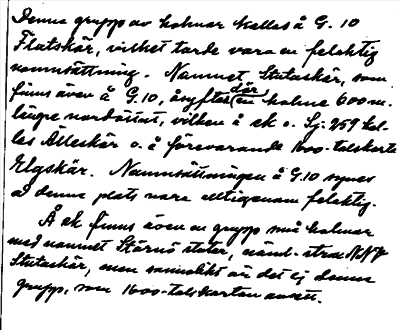 Denna grupp av holmar kallas å G. 10
Flatskär, vilket torde vara en felaktig
namnsättning. Namnet Stutaskär, som
finns även å G.10, åsyftas där en holme 600 m.
längre nordöstut, vilken å ek o. Sj. 259 kal-
las Älleskär o. å förevarande 1600-talskarta
Elgskär. Namnsättningen å G.10 synes
å denna plats vara alltigenom felaktig.
Å ek finns även en grupp små holmar
med namnet Stärnö stutar, näml. strax NNV
Stutaskär, men sannolikt är det ej denna
grupp, som 1600-talskartan avsett.